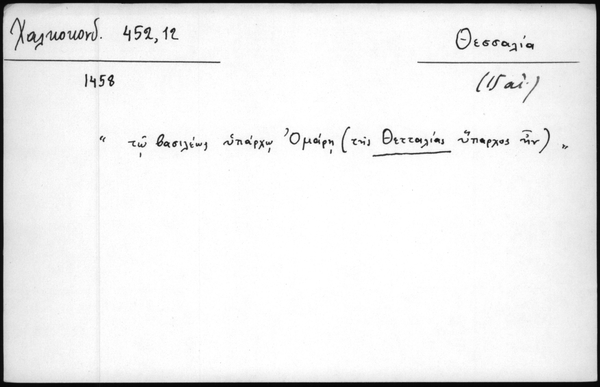 Χαλκοκονδ. 452,12
Θεσσαλία
1458
(15 αἰ.)
" τῷ βασιλέως ὑπάρχῳ Ὀμάρῃ (τῆς Θετταλίας ὕπαρχος ἦν) "